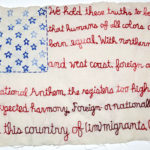 We hold these truths to b
that humans of all colors a
born equal. With northern
and west coast, foreign a
National Anthem the registers too high
xpected harmony. Foreign or national
this country of (im)migrants